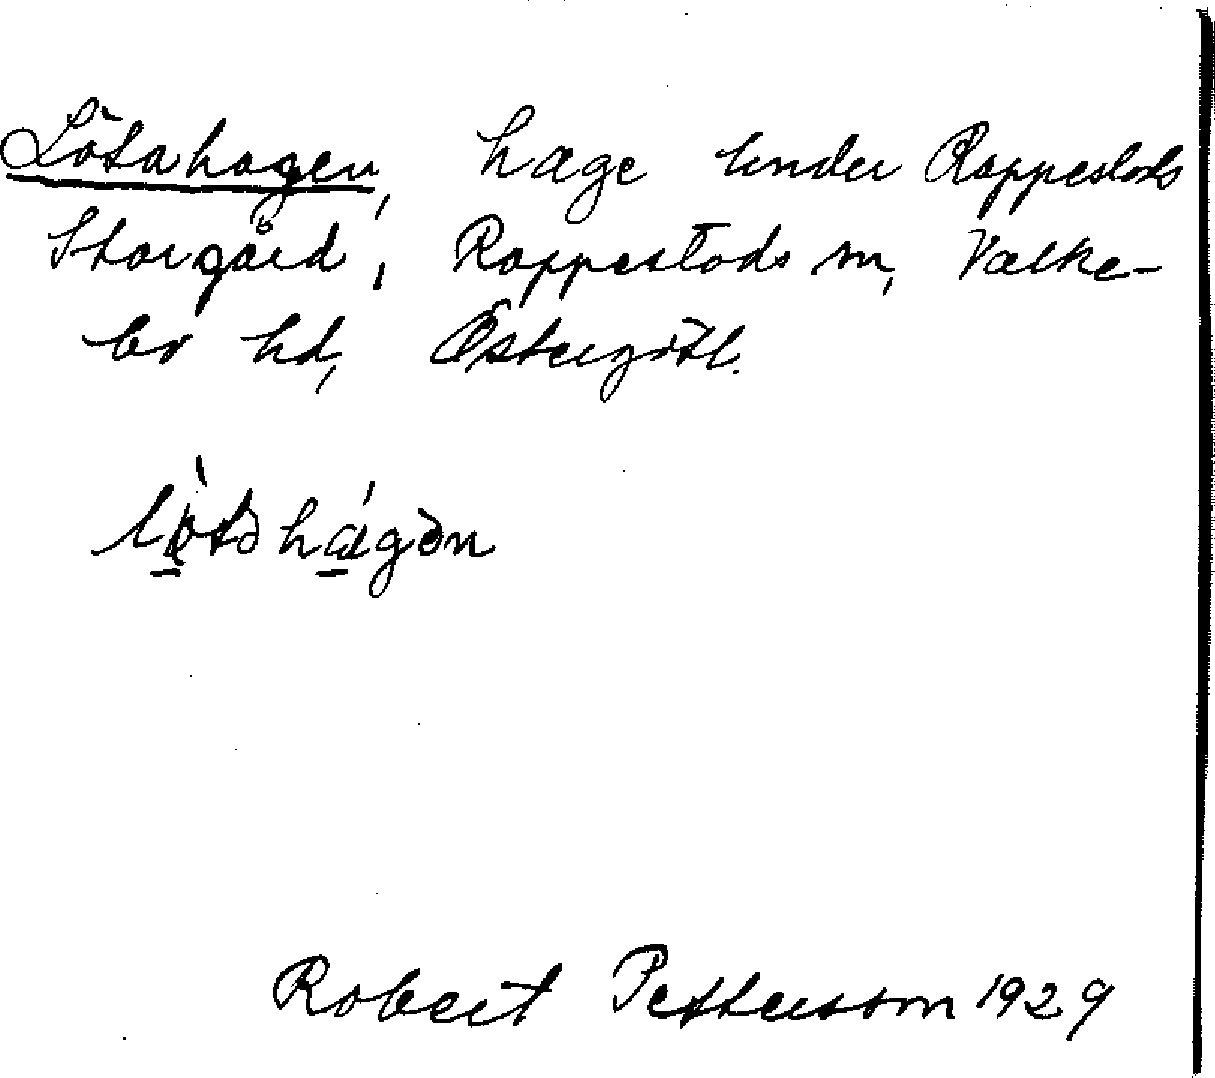 Lötahagen, hage under Rappestads
Storgård, Rappestads sn, Valke-
bo hd, Östergötl.
lötəhágən
Robert Pettersson 1929